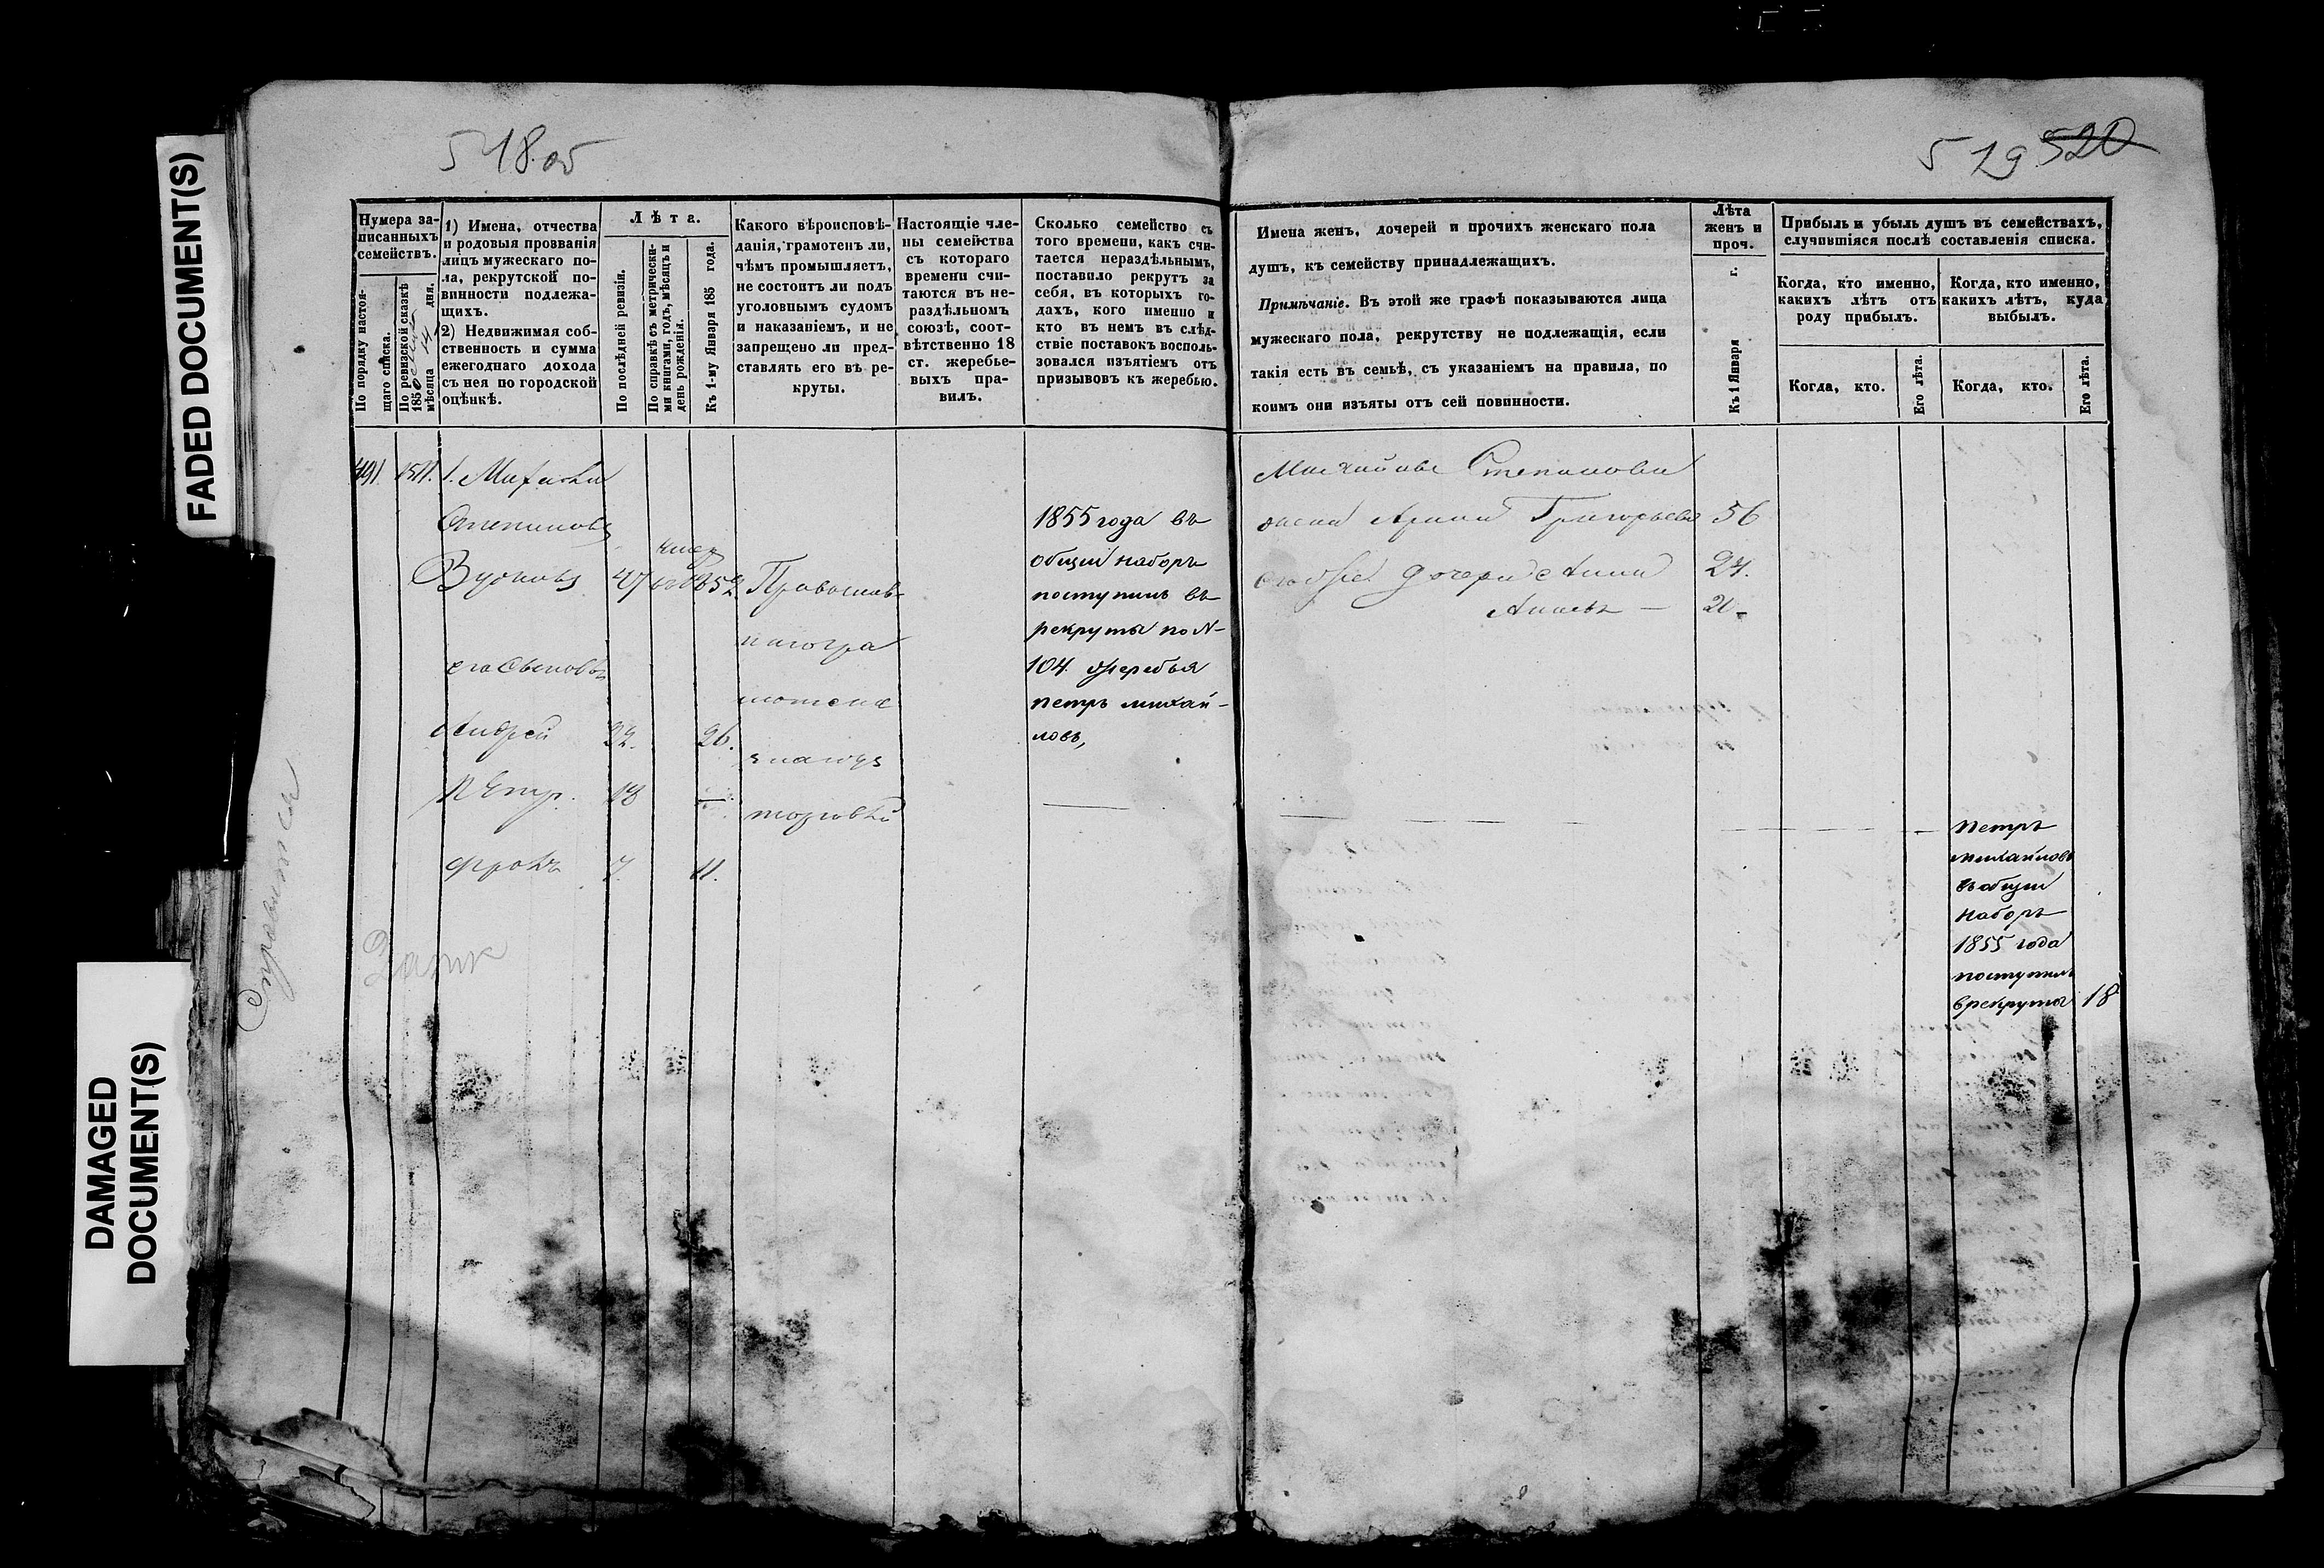 FADED DOCUMENT(S)
DAMAGED
DOCUMENT(S)
518.об
Нумера за-
писанныхъ
семействъ.
По порядку настоя-
щаго списка.
По ревизской сказкѣ
185 года
мѣсяца 14 дня.
1) Имена, отчества
и родовыя прозванія
лицъ мужескаго по-
ла, рекрутской по-
винности подлежа-
щихъ.
2) Недвижимая соб-
ственность и сумма
ежегоднаго дохода
съ нея по городской
оцѣнкѣ.
Лѣта.
По послѣдней ревизіи.
По справкѣ съ метрически-
ми книгами, годъ, мѣсяцъ и
день рожденія.
Къ 1-му Января 185 года.
Какого вѣроисповѣ-
данія, грамотенъ ли,
чѣмъ промышляетъ,
не состоитъ ли подъ
уголовнымъ судомъ
и наказаніемъ, и не
запрещено ли пред-
ставлять его въ ре-
круты.
Настоящіе чле-
ны семейства
съ котораго
времени счи-
таются въ не-
раздѣльномъ
союзѣ, соот-
вѣтственно 18
ст. жеребье-
выхъ пра-
вилъ.
Сколько семейство съ
того времени, какъ счи-
тается нераздѣльнымъ,
поставило рекрутъ за
себя, въ которыхъ го-
дахъ, кого именно и
кто въ немъ въ слѣд-
ствіе поставокъ восполь-
зовался изъятіемъ отъ
призывовъ къ жеребью.
491. 1511. 1. Михаила
Степановъ
47 умер 1852. Православ-
наго гра
его сыновья
мотенъ
Андрей 22. 26.
Петр. 18 —
торговлей
Фролъ 7. 11.
1855 года въ
общій наборъ
поступилъ въ
рекруты по №
104. жеребья
петръ михай-
ловъ,
Справиться
519 520
Имена женъ, дочерей и прочихъ женскаго пола
душъ, къ семейству принадлежащихъ.
Примѣчаніе. Въ этой же графѣ показываются лица
мужескаго пола, рекрутству не подлежащія, если
такія есть въ семьѣ, съ указаніемъ на правила, по
коимъ они изъяты отъ сей повинности.
Лѣта
женъ и
проч.
Къ 1 Января г.
Прибыль и убыль душъ въ семействахъ,
случившіяся послѣ составленія списка.
Когда, кто именно,
какихъ лѣтъ отъ
роду прибылъ.
Когда, кто именно,
какихъ лѣтъ, куда
выбылъ.
Когда, кто.
Его лѣта.
Когда, кто.
Его лѣта.
Михайлы Степанова
жена Арина Григорьева 56
его же дочери Анна 24.
20.
петръ
михайловъ
въ общій
наборъ
1855 года
поступилъ
врекруты 18